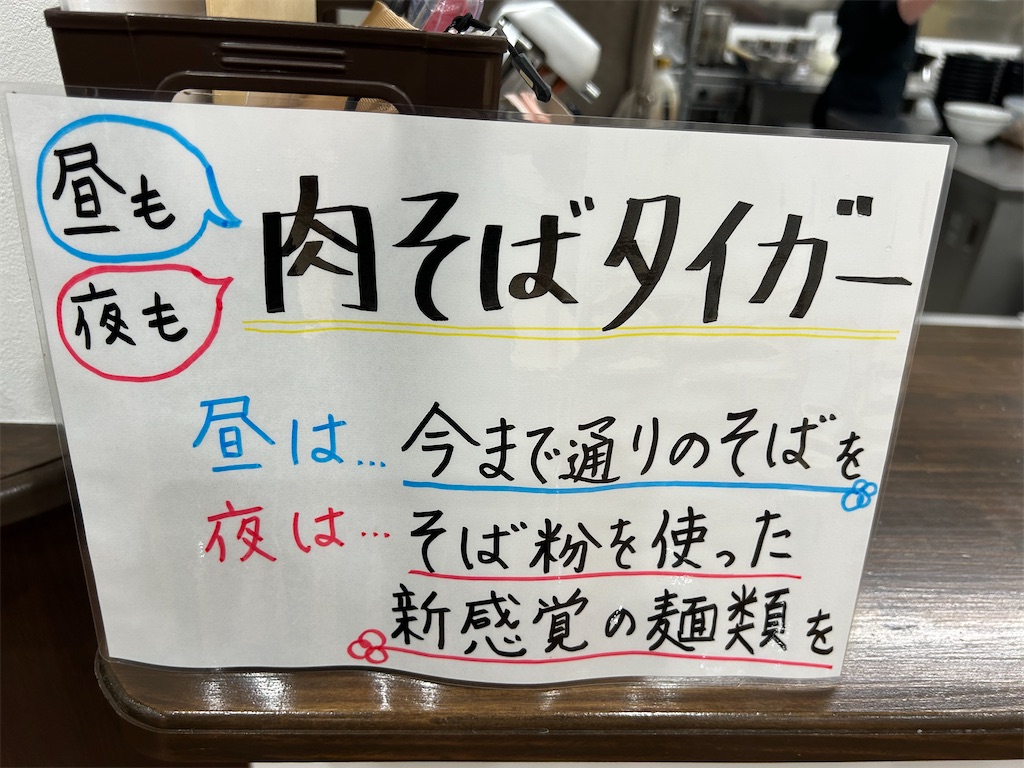 昼も
夜も
肉そばタイガー
昼は…今まで通りのそばを
夜は…そば粉を使った
新感覚の麺類を